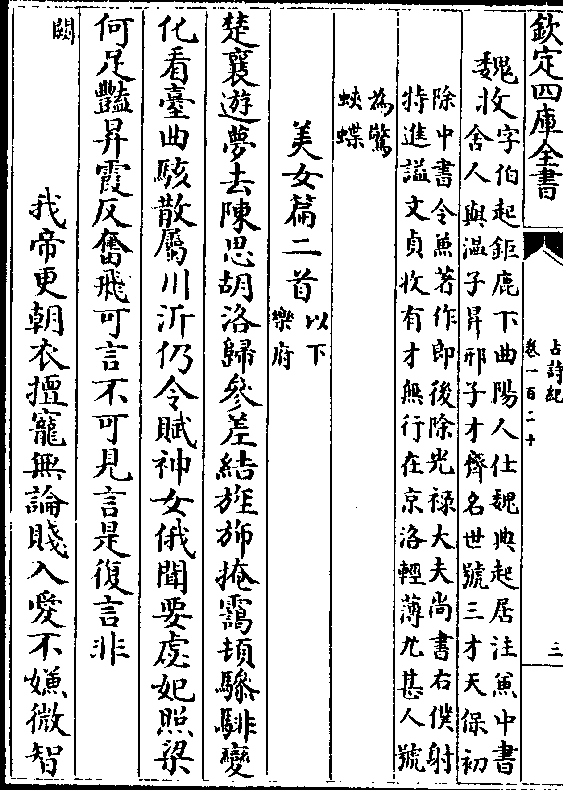 欽定四庫全書
古詩紀
卷一百二十
三
魏收字伯起鉅鹿下曲陽人仕魏典起居注兼中書
舍人與溫子昇邢子才齊名世號三才天保初
除中書令兼著作郎後除光祿大夫尚書右僕射
特進謚文貞收有才無行在京洛輕薄尤甚人號
為驚
蛺蝶
美女篇二首以下
樂府
楚襄遊夢去陳思胡洛歸參差結旌斾掩靄頓驂騑變
化看臺曲駭散屬川沂仍令賦神女俄聞要虙妃照梁
何足豔昇霞反奮飛可言不可見言是復言非
我帝更朝衣擅寵無論賤入愛不嫌微智
闕